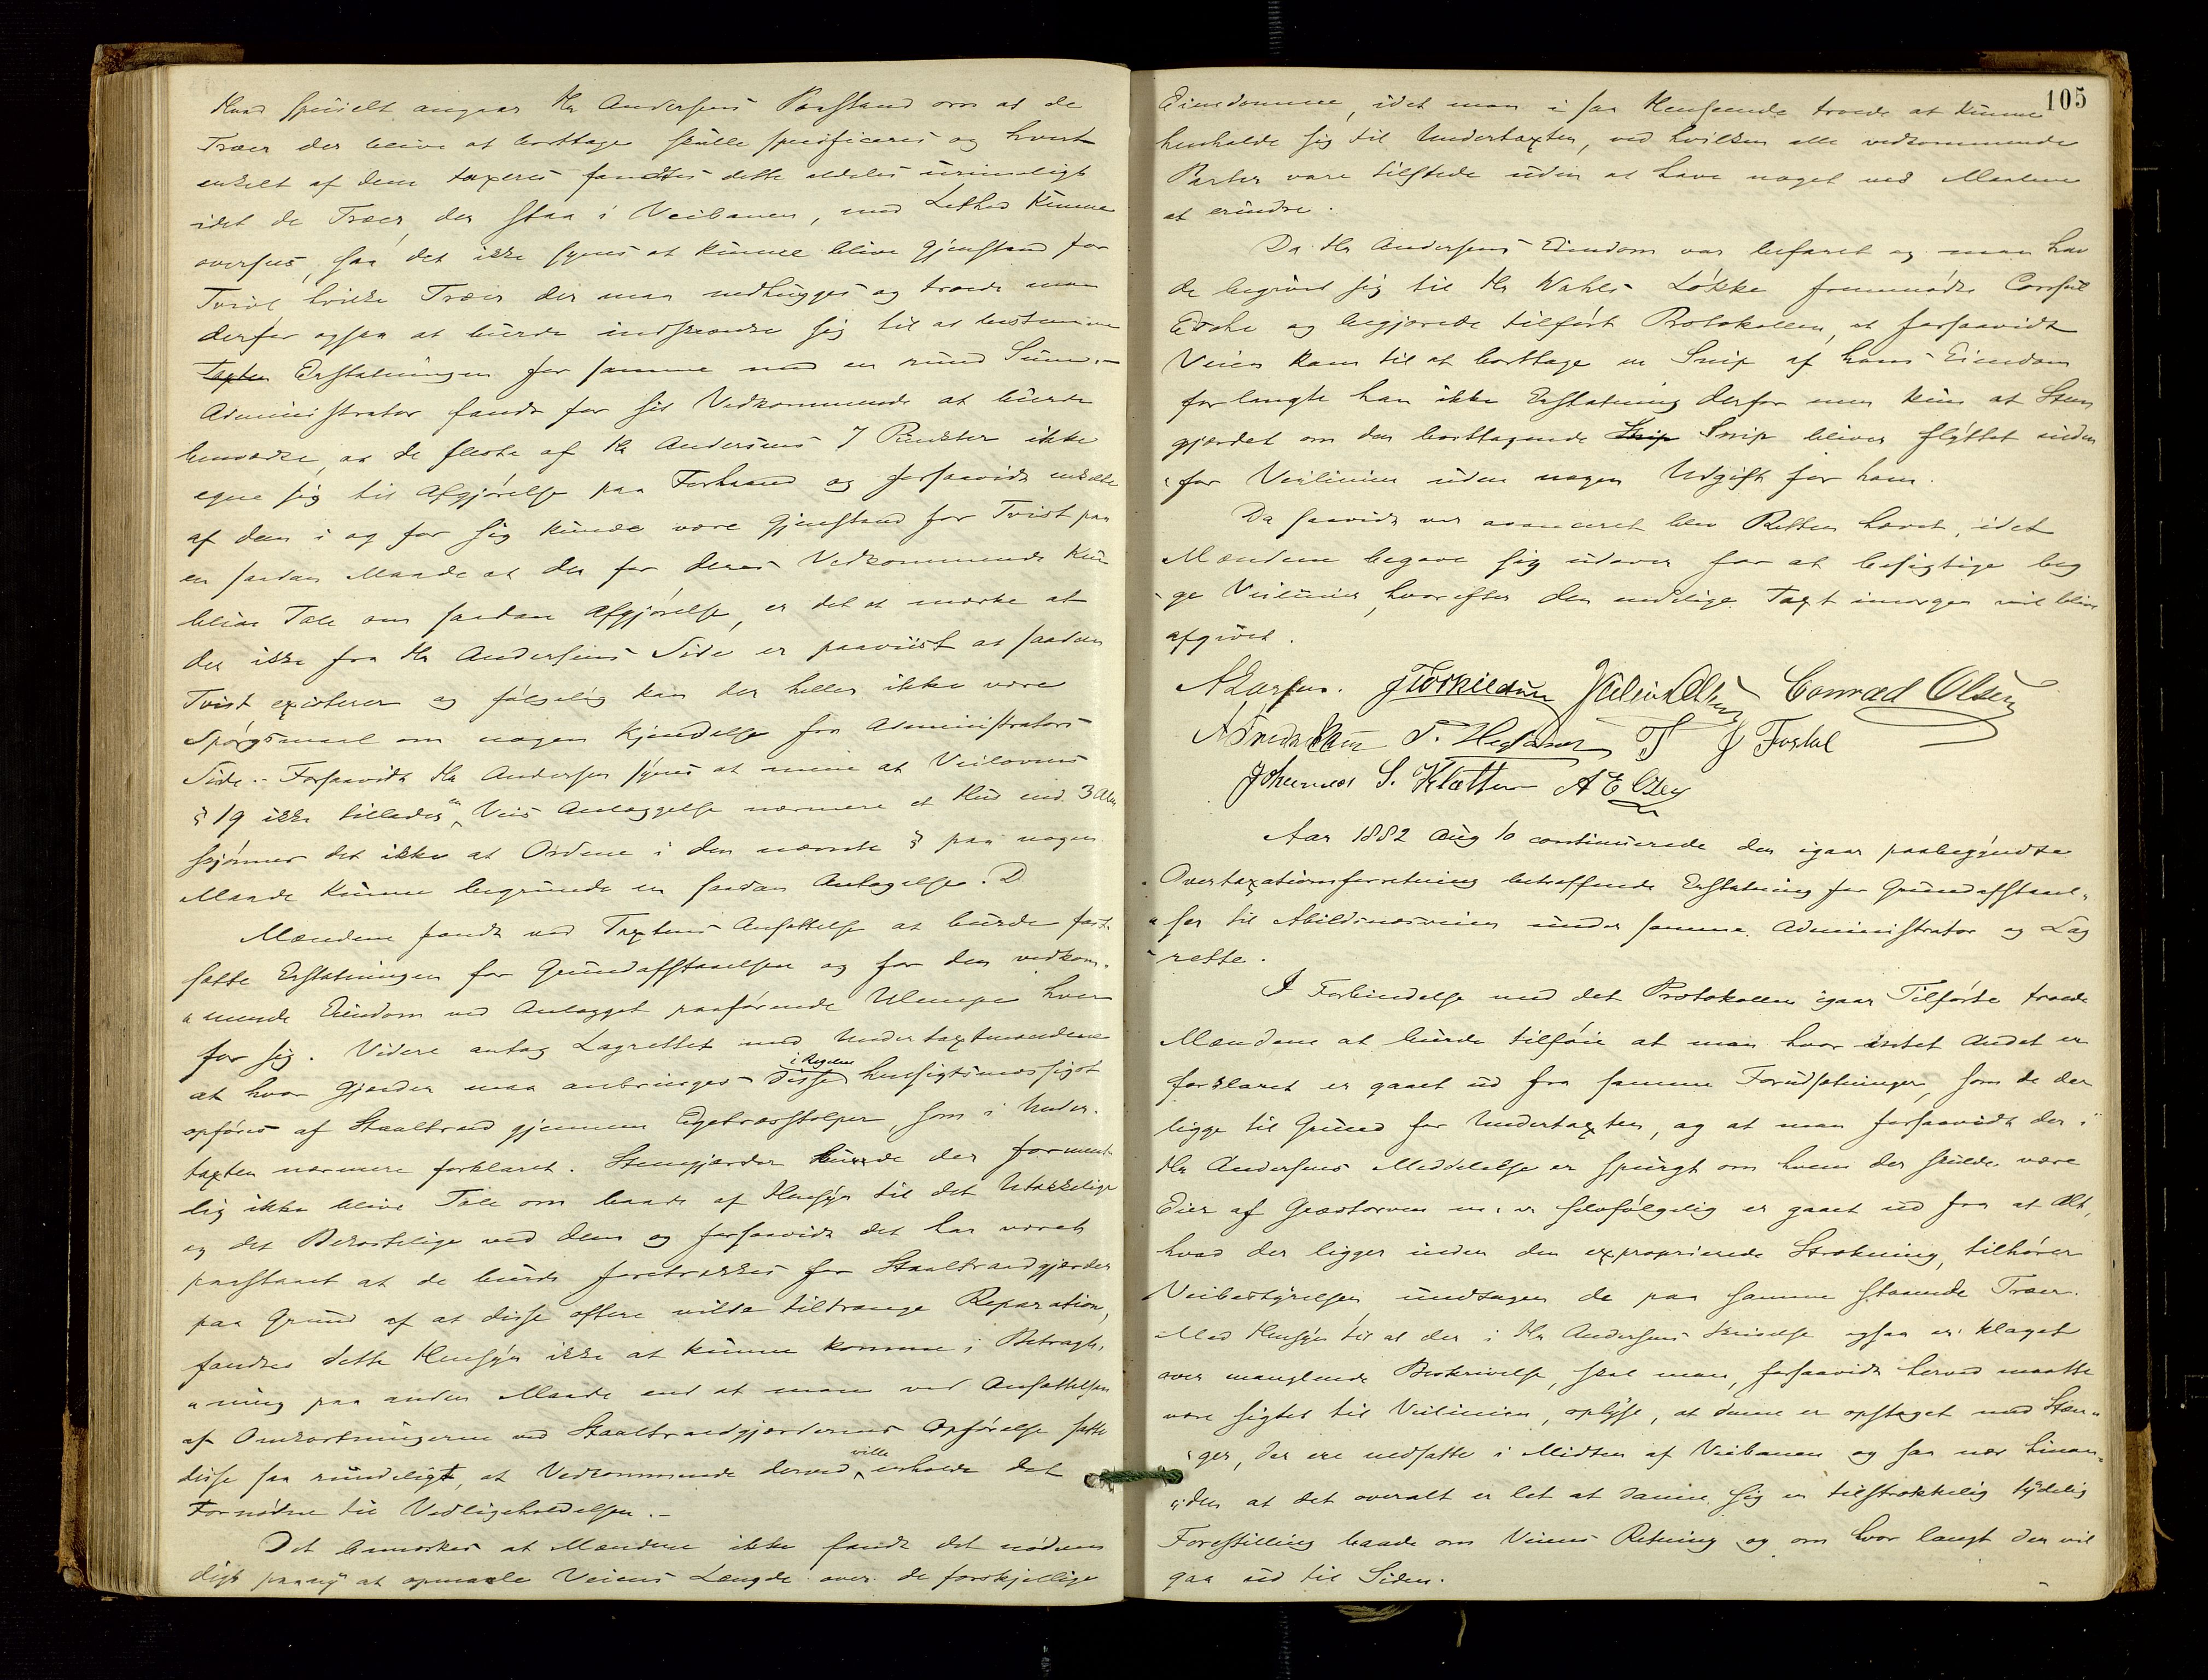 Hvad specielt angaar Hr Andersens Paastand om at de
Træer der blive at borttage skulle specificeres og hvert
enkelt af dem taxeres fandtes dette aldeles urimeligt
idet de Træer, der staa i Veibanen, med Lethed kunne
oversees, saa det ikke synes at kunne blive Gjenstand for
Tvivl hvilke Træer der maa nedhugges og troede man
derfor ogsaa at burde indskrænke sig til at bestemme
Taxten Erstatningen for samme med en rund Sum.-
Administrator fandt for sit Vedkommende at burde
bemærke, at de fleste af Hr Andersens 7 Punkter ikke
egne sig til Afgjörelse paa Forhaand og forsaavidt enkelte
af dem i og for sig kunde være Gjenstand for Tvist paa
en saadan Maade at der for deres Vedkommende kun
bliver Tale om saadan Afgjörelse, er det at mærke at
der ikke fra Hr Andersens Side er paavist at saadan
Tvist existerer og fölgelig kan der heller ikke være
Spörgsmaal om nogen Kjendelse fra Administrators
Side.- Forsaavidt Hr Andersen synes at mene at Veilovens
§ 19 ikke tillader en Veis Anlæggelse nærmere et Hus end 3 Alen
skjönner det ikke at Ordene i den nævnte § paa nogen
Maade kunne begrunde en saadan Antagelse. D
Mændene fandt ved Taxtens Ansættelse at burde fast-
sætte Erstatningen for Grundafstaaelsen og for den vedkom-
„mende Eiendom ved Anlægget paaförende Ulempe hver
for sig. Videre antog Lagrettet med Undertaxtmændene
at hvor Gjerder maa anbringes disse i Regelen hensigtsmæssigst
opföres af Staaltraad gjennem Egetræsstolper, som i Under-
taxten nærmere forklaret. Stengjærder burde der forment-
lig ikke blive Tale om baade af Hensyn til det Utækkelige
og det Bekostelige ved dem og forsaavidt det har været
paastaaet at de burde foretrækkes for Staaltraadgjærder
paa Grund af at disse oftere vilde tiltrænge Reparation,
fandtes dette Hensyn ikke at kunne komme i Betragt-
„ning paa anden Maade end at man ved Ansættelsen
af Omkostningerne ved Staaltraadgjærdernes Opförelse satte
disse saa rundeligt, at Vedkommende derved ville erholde det
Fornödne til Vedligeholdelsen.-
Det bemærkes at Mændene ikke fandt det nödven
digt paany at opmaale Veiens Længde over de forskjellige
105
Eiendomme, idet man i saa Henseende troede at kunne
henholde sig til Undertaxten, ved hvilken alle vedkommende
Parter vare tilstede uden at have noget ved Maalene
at erindre.
Da Hr Andersens Eiendom var befaret og man hav
de begivet sig til Hr Wahls Lökke fremmödte Consul
Esche og begjærede tilfört Protokollen, at forsaavidt
Veien kom til at borttage en Snip af hans Eiendom
forlangte han ikke Erstatning derfor men kun at Sten
gjærdet om den borttagende Snip Snip bliver flyttet uden
„for Veilinien uden nogen Udgift for ham.
Da saavidt var avanceret blev Retten hævet, idet
Mændene begave sig udover for at besigtige beg
„ge Veilinier, hvorefter den endelige Taxt imorgen vil blive
afgivet.
A Larsen. J Torkildsen Julius Olsen Conrad Olsen
A Fredriksen T. J Fostad
Johannes S. Kletten A E Olsen
Aar 1882 Aug 10 continuerede den igaar paabegyndte
Overtaxationsforretning betræffende Erstatning for Grundafstaael-
„ser til Abildsnæsveien under samme Administrator og Lag
„rette.
I Forbindelse med det Protokollen igaar Tilförte troede
Mændene at burde tilföie at man hvor intet Andet er
forklaret er gaaet ud fra samme Forudsætninger, som de der
ligge til Grund for Undertaxten, og at man forsaavidt der i
Hr Andersens Meddelelse er spurgt om hvem der skulde være
Eier af Græstorven m. v. selvfölgelig er gaaet ud fra at Alt,
hvad der ligger inden den exproprierede Strækning, tilhörer
Veibestyrelsen undtagen de paa samme staaende Træer.
Med Hensyn til at der i Hr Andersens Skrivelse ogsaa er klaget
over manglende Beskrivelse, skal man, forsaavidt herved maatte
være sigtet til Veilinien, oplyse, at denne er opstuget med Stæn-
„ger, der ere nedsatte i Midten af Veibanen og saa nær hinan-
„den at det overalt er let at danne sig en tilstrækkelig tydelig
Forestilling baade om Veiens Retning og om hvor langt den vil
gaa ud til Siden.